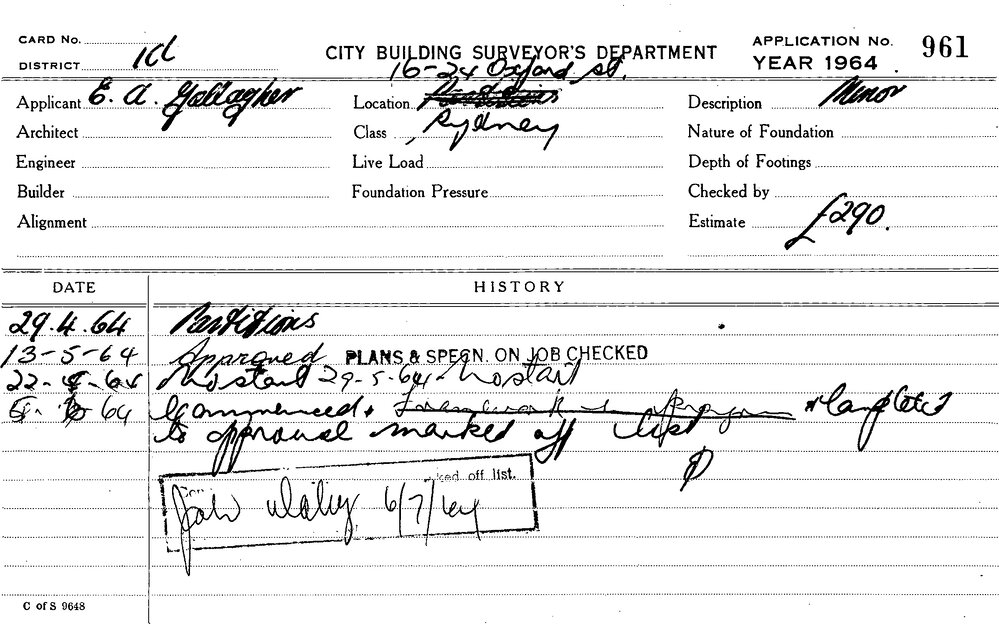 CARD No.
DISTRICT
CITY BUILDING SURVEYOR'S DEPARTMENT
APPLICATION No. 961
YEAR 1964
16-24 Oxford St.
Applicant E. A. Gallagher
Location
Description Minor
Architect
Class Sydney
Nature of Foundation
Engineer
Live Load
Depth of Footings
Builder
Foundation Pressure
Checked by
Alignment
Estimate £290.
DATE
HISTORY
29.4.64 Partitions
13-5-64 Approved PLANS & SPECN. ON JOB CHECKED
22-5-64 No start 29-5-64 No start
64 Commenced + Framework in progress Completed
to approval marked off list
ked off list.
6/7/64
C of S 9648